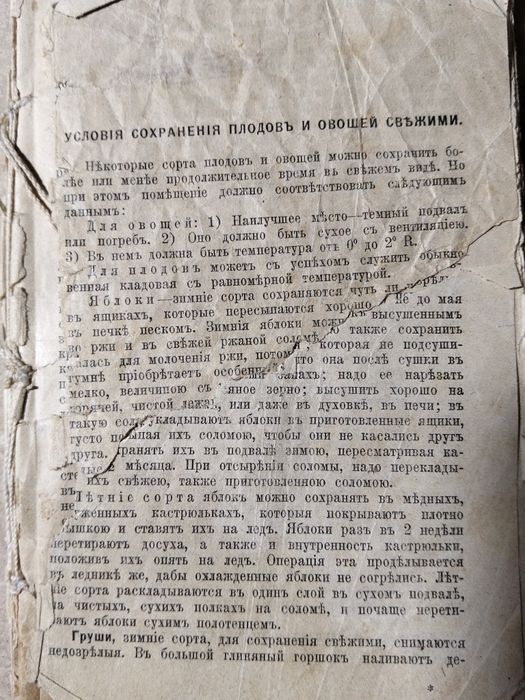 УСЛОВІЯ СОХРАНЕНІЯ ПЛОДОВЪ И ОВОЩЕЙ СВѢЖИМИ.
Нѣкоторые сорта плодовъ и овощей можно сохранить бо-
лѣе или менѣе продолжительное время въ свѣжемъ видѣ. Но
при этомъ помѣщеніе должно соотвѣтствовать слѣдующимъ
даннымъ:
Для овощей: 1) Наилучшее мѣсто—темный подвалъ
или погребъ. 2) Оно должно быть сухое съ вентиляціею.
3) Въ немъ должна быть температура отъ 0° до 2° R.
Для плодовъ можетъ съ успѣхомъ служить обыкно-
венная кладовая съ равномѣрной температурой.
Яблоки—зимніе сорта сохраняются чуть ли
въ ящикахъ, которые пересыпаются хорошо не до мая
въ печкѣ пескомъ. Зимнія яблоки высушеннымъ
во ржи и въ свѣжей ржаной соломѣ также сохранить
которая не подсуши-
валась для молоченія ржи, что она послѣ сушки въ
гумнѣ пріобрѣтаетъ запахъ; надо ее нарѣзать
мелко, величиною съ зерно; высушить хорошо на
горячей, чистой или даже въ духовкѣ, въ печи; въ
такую укладываютъ яблоки въ приготовленные ящики,
густо ихъ соломою, чтобы они не касались другъ
друга. Хранять ихъ въ подвалѣ зимою, пересматривая ка-
2 мѣсяца. При отсырѣніи соломы, надо переклады-
ихъ свѣжею, также приготовленною соломою.
Лѣтніе сорта яблокъ можно сохранять въ мѣдныхъ,
кастрюлькахъ, которыя покрываютъ плотно
и ставятъ ихъ на ледъ. Яблоки разъ въ 2 недѣли
перетираютъ досуха, а также и внутренность кастрюльки,
положивъ ихъ опять на ледъ. Операція эта продѣлывается
въ ледникѣ же, дабы охлажденные яблоки не согрѣлись. Лѣт-
ніе сорта раскладываются въ одинъ слой въ сухомъ подвалѣ,
на чистыхъ, сухихъ полкахъ на соломѣ, и почаще перети-
раютъ яблоки сухимъ полотенцемъ.
Груши, зимніе сорта, для сохраненія свѣжими, снимаются
недозрѣлыя. Въ большой глиняный горшокъ наливаютъ де-
*